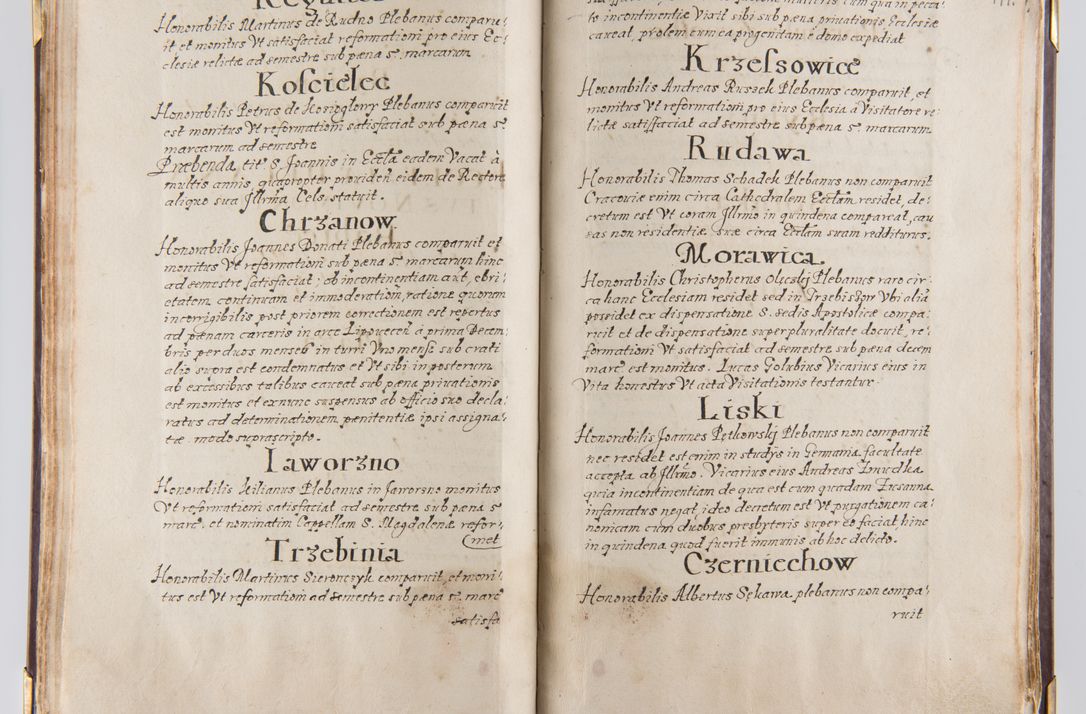 Honorabilis Martinus de Rudno Plebanus comparu:
it et monitus Vt satisfaciat reformationi pro eius Ec:
clesiæ relictæ ad semestre sub pæna sᵗ. marcarum
Kościelec
Honorabilis Petrus de Kozieglowy Plebanus comparuit
est monitus Vt reformationi satisfaciat sub pæna sᵗ
marcarum ad semestre
Præbenda tit. S. Joannis in Eccła eadem Vacat à
multis annis, quapropter provideri eidem de Rectore
aliquo sua Illrma Cels. statuit.
Chrzanow.
Honorabilis Joannes Donati Plebanus comparuit et
monitus Vt reformationi sub pæna sᵗ marcarum hinc
ad semestre satisfaciat; ob incontinentiam aut, ebri:
etatem continuam et immoderatiom, ratione quorum
incorrigibilis post priorem correctionem est repertus
ad pænam carceris in arce Lipovecen à prima Decem:
bris per duos menses in turri Vno mense sub crati
alio supra est condemnatus et Vt sibi in posterum
ab excessibus talibus caveat sub pæna privationis
est monitus et exnunc suspensus ab officio suo decla:
ratus ad determinationem pænitentiæ ipsi assigna:
tæ modo suprascripto.
Iaworzno
Honorabilis Kilianus Plebanus in Jaworzno monitus
Vt reformationi satisfaciat ad semestre sub pæna sᵗ
marc. et nominatim Cappellam S. Magdalenæ refor:
met
Trzebinia
Honorabilis Martinus Sieronczyk comparuit, et moni:
tus est Vt reformationi ad semestre sub pæna sᵗ marc
satisfa
tis incontinentiæ Vixit sibi sub pæna privationis Ecclesiæ
caveat, prolem cum ea progenitam è domo expediat
Krzessowice
Honorabilis Andreas Ruszek Plebanus comparuit, et
monitus Vt reformationi pro eius Ecclesia à Visitatore re:
lictæ satisfaciat ad semestre sub pæna sᵗ marcarum
Rudawa
Honorabilis Thomas Schadek Plebanus non comparuit
Cracoviæ enim circa Cathedralem Eccłam residet, de:
cretum est Vt coram Illrmo in quindena compareat, cau
sas non residentiæ suæ circa Eccłam suam redditurus.
Morawica.
Honorabilis Christopherus Olęczkj Plebanus raro cir:
ca hanc Ecclesiam residet sed in Trzebiszow Vbi aliā
possidet ex dispensatione S. Sedis Apostolicæ compa:
ruit et de dispensatione super pluralitate docuit, re:
formationi Vt satisfaciat ad semestre sub pæna decem
marc. est monitus. Lucas Golubius Vicarius eius in
Vita honestus Vt acta Visitationis testantur.
Liski
Honorabilis Joannes Pętkowskj Plebanus non comparuit
nec residet est enim in studijs in Germania facultate
accepta ab Illrmo. Vicarius eius Andreas Zmudka
quia incontinentiam de qua est cum quadam Zusanna
infamatus negat, ideo decretum est Vt purgationem ca:
nonicam cum duobus presbyteris super eo faciat hinc
in quindena quod fuerit immunis ab hoc delicto.
Czerniechow
Honorabilis Albertus Sękawa plebanus non compa:
ruit